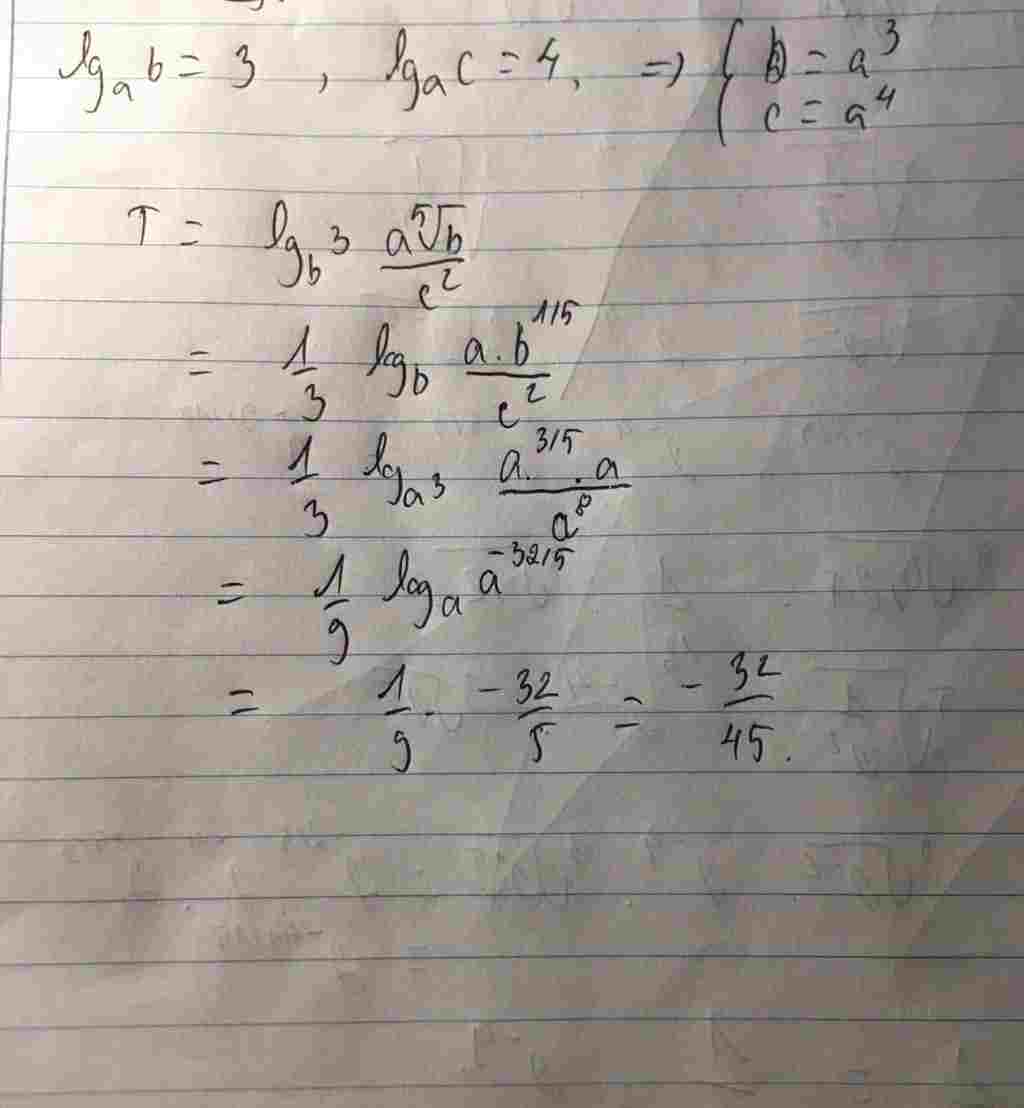 lg_a b = 3 , lg_a c = 4, => { b = a^3
c = a^4
T = lg_{b^3} \frac{a\sqrt[5]{b}}{c^2}
= \frac{1}{3} log_b \frac{a.b^{1/5}}{c^2}
= \frac{1}{3} lg_{a^3} \frac{a^{3/5}.a}{a^8}
= \frac{1}{9} log_a a^{-32/5}
= \frac{1}{9} . \frac{-32}{5} = -\frac{32}{45}.